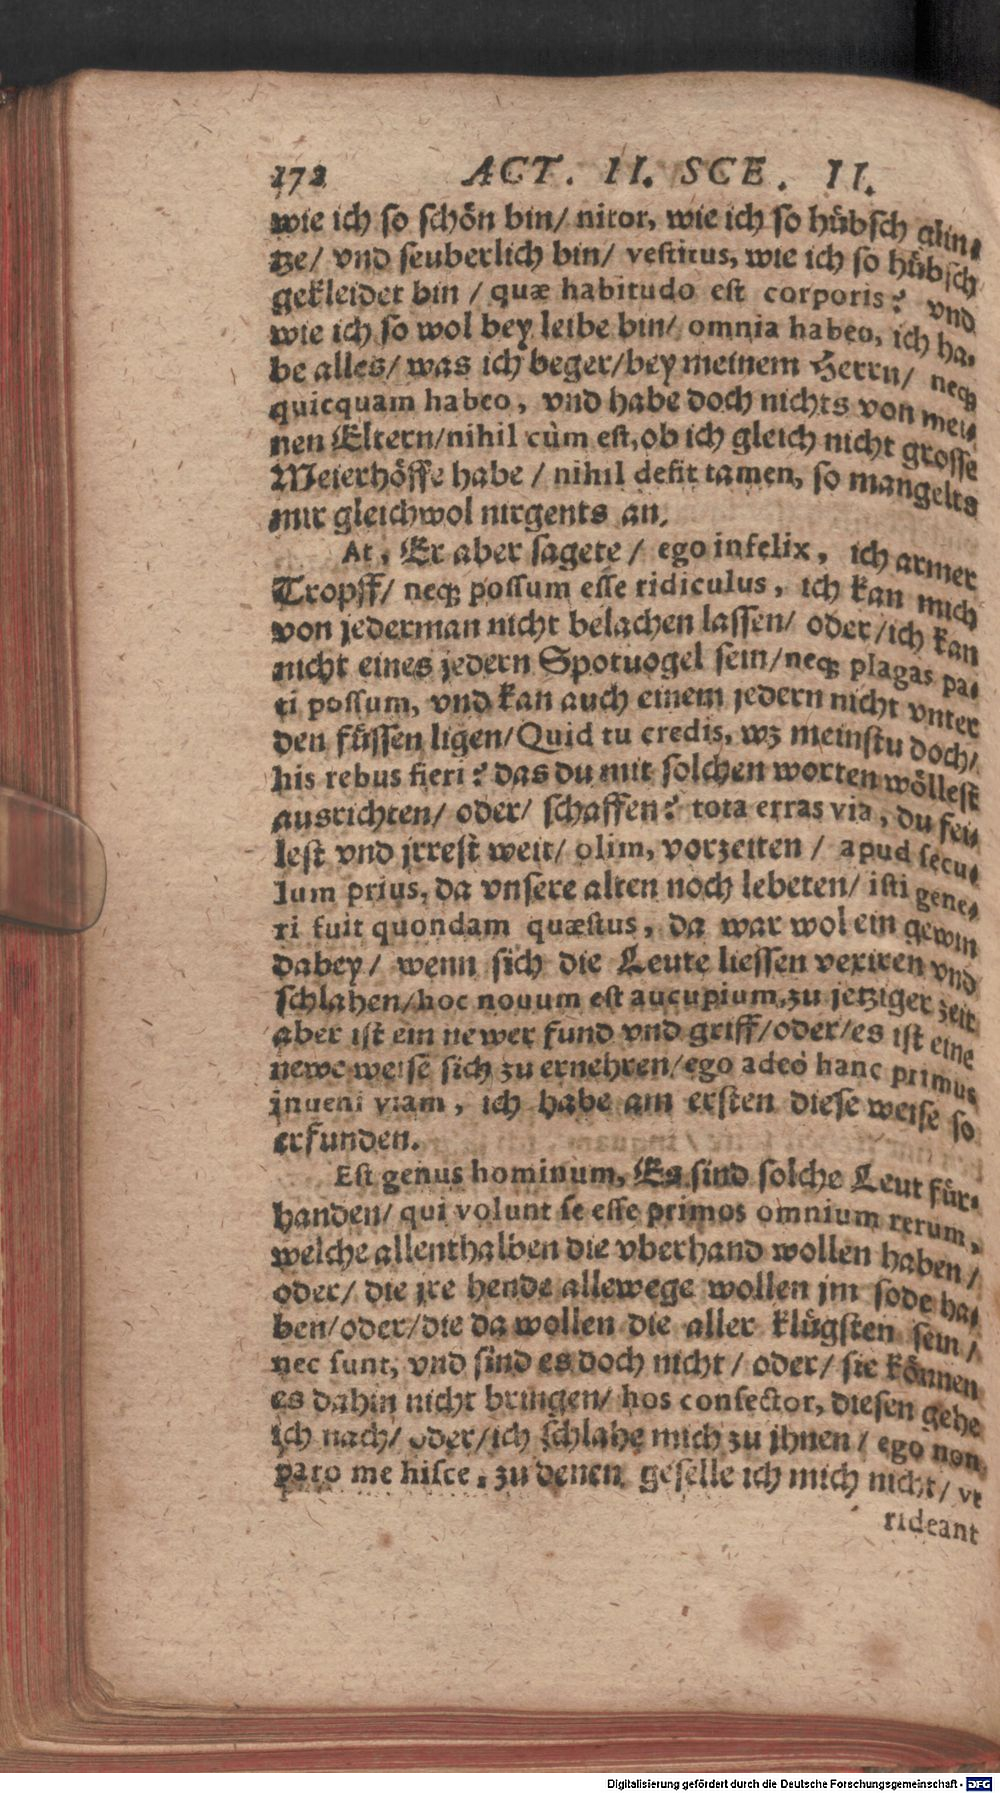 172 ACT. II. SCE. II.
wie ich so schön bin/ nitor, wie ich so hübsch glin⸗
tze/ vnd seuberlich bin/ vestitus, wie ich so hübsch
gekleidet bin / quæ habitudo est corporis? vnd
wie ich so wol bey leibe bin/ omnia habeo, ich ha⸗
be alles/ was ich beger/bey meinem Herrn/ neq;
quicquam habeo, vnd habe doch nichts von mei⸗
nen Eltern/nihil cùm est,ob ich gleich nicht grosse
Meierhöffe habe / nihil defit tamen, so mangelts
mir gleichwol nirgents an.
At, Er aber sagete / ego infelix, ich armer
Tropff/ neq; possum esse ridiculus, ich kan mich
von jederman nicht belachen lassen/ oder/ich kan
nicht eines jedern Spotuogel sein/neq; plagas pa⸗
ti possum, vnd kan auch einem jedern nicht vnter
den füssen ligen/Quid tu credis, wz meinstu doch/
his rebus fieri? das du mit solchen worten wöllest
ausrichten/ oder/ schaffen? tota erras via, du fei⸗
lest vnd jrrest weit/ olim, vorzeiten / apud secu⸗
lum prius, da vnsere alten noch lebeten/ isti gene⸗
ri fuit quondam quæstus, da war wol ein gewin
dabey/ wenn sich die Leute liessen vexiren vnd
schlahen/hoc nouum est aucupium,zu jetziger zeit
aber ist ein newer fund vnd griff/oder/es ist eine
newe weise sich zu ernehren/ego adeò hanc primus
inueni viam, ich habe am ersten diese weise so
erfunden.
Est genus hominum, Es sind solche Leut für⸗
handen/ qui volunt se esse primos omnium rerum,
welche allenthalben die vberhand wollen haben/
oder/ die jre hende allewege wollen jm sode ha⸗
ben/oder/die da wollen die aller klügsten sein /
nec sunt, vnd sind es doch nicht / oder/ sie können
es dahin nicht bringen/ hos consector, diesen gehe
ich nach/ oder/ich schlahe mich zu jhnen / ego non
paro me hisce, zu denen geselle ich mich nicht/ vt
rideant
Digitalisierung gefördert durch die Deutsche Forschungsgemeinschaft - DFG